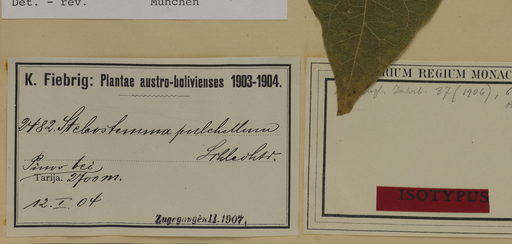 Det. - rev. München
K. Fiebrig: Plantae austro-bolivienses 1903-1904.
2482. Stelostemma pulchellum
Schlechtr.
Pinos bei
Tarija. 2700 m.
12. I. 04.
Zugegangen 11. 1907.
RIUM REGIUM MONAC
Jahrb. 37 (1906), 6
ISOTYPUS